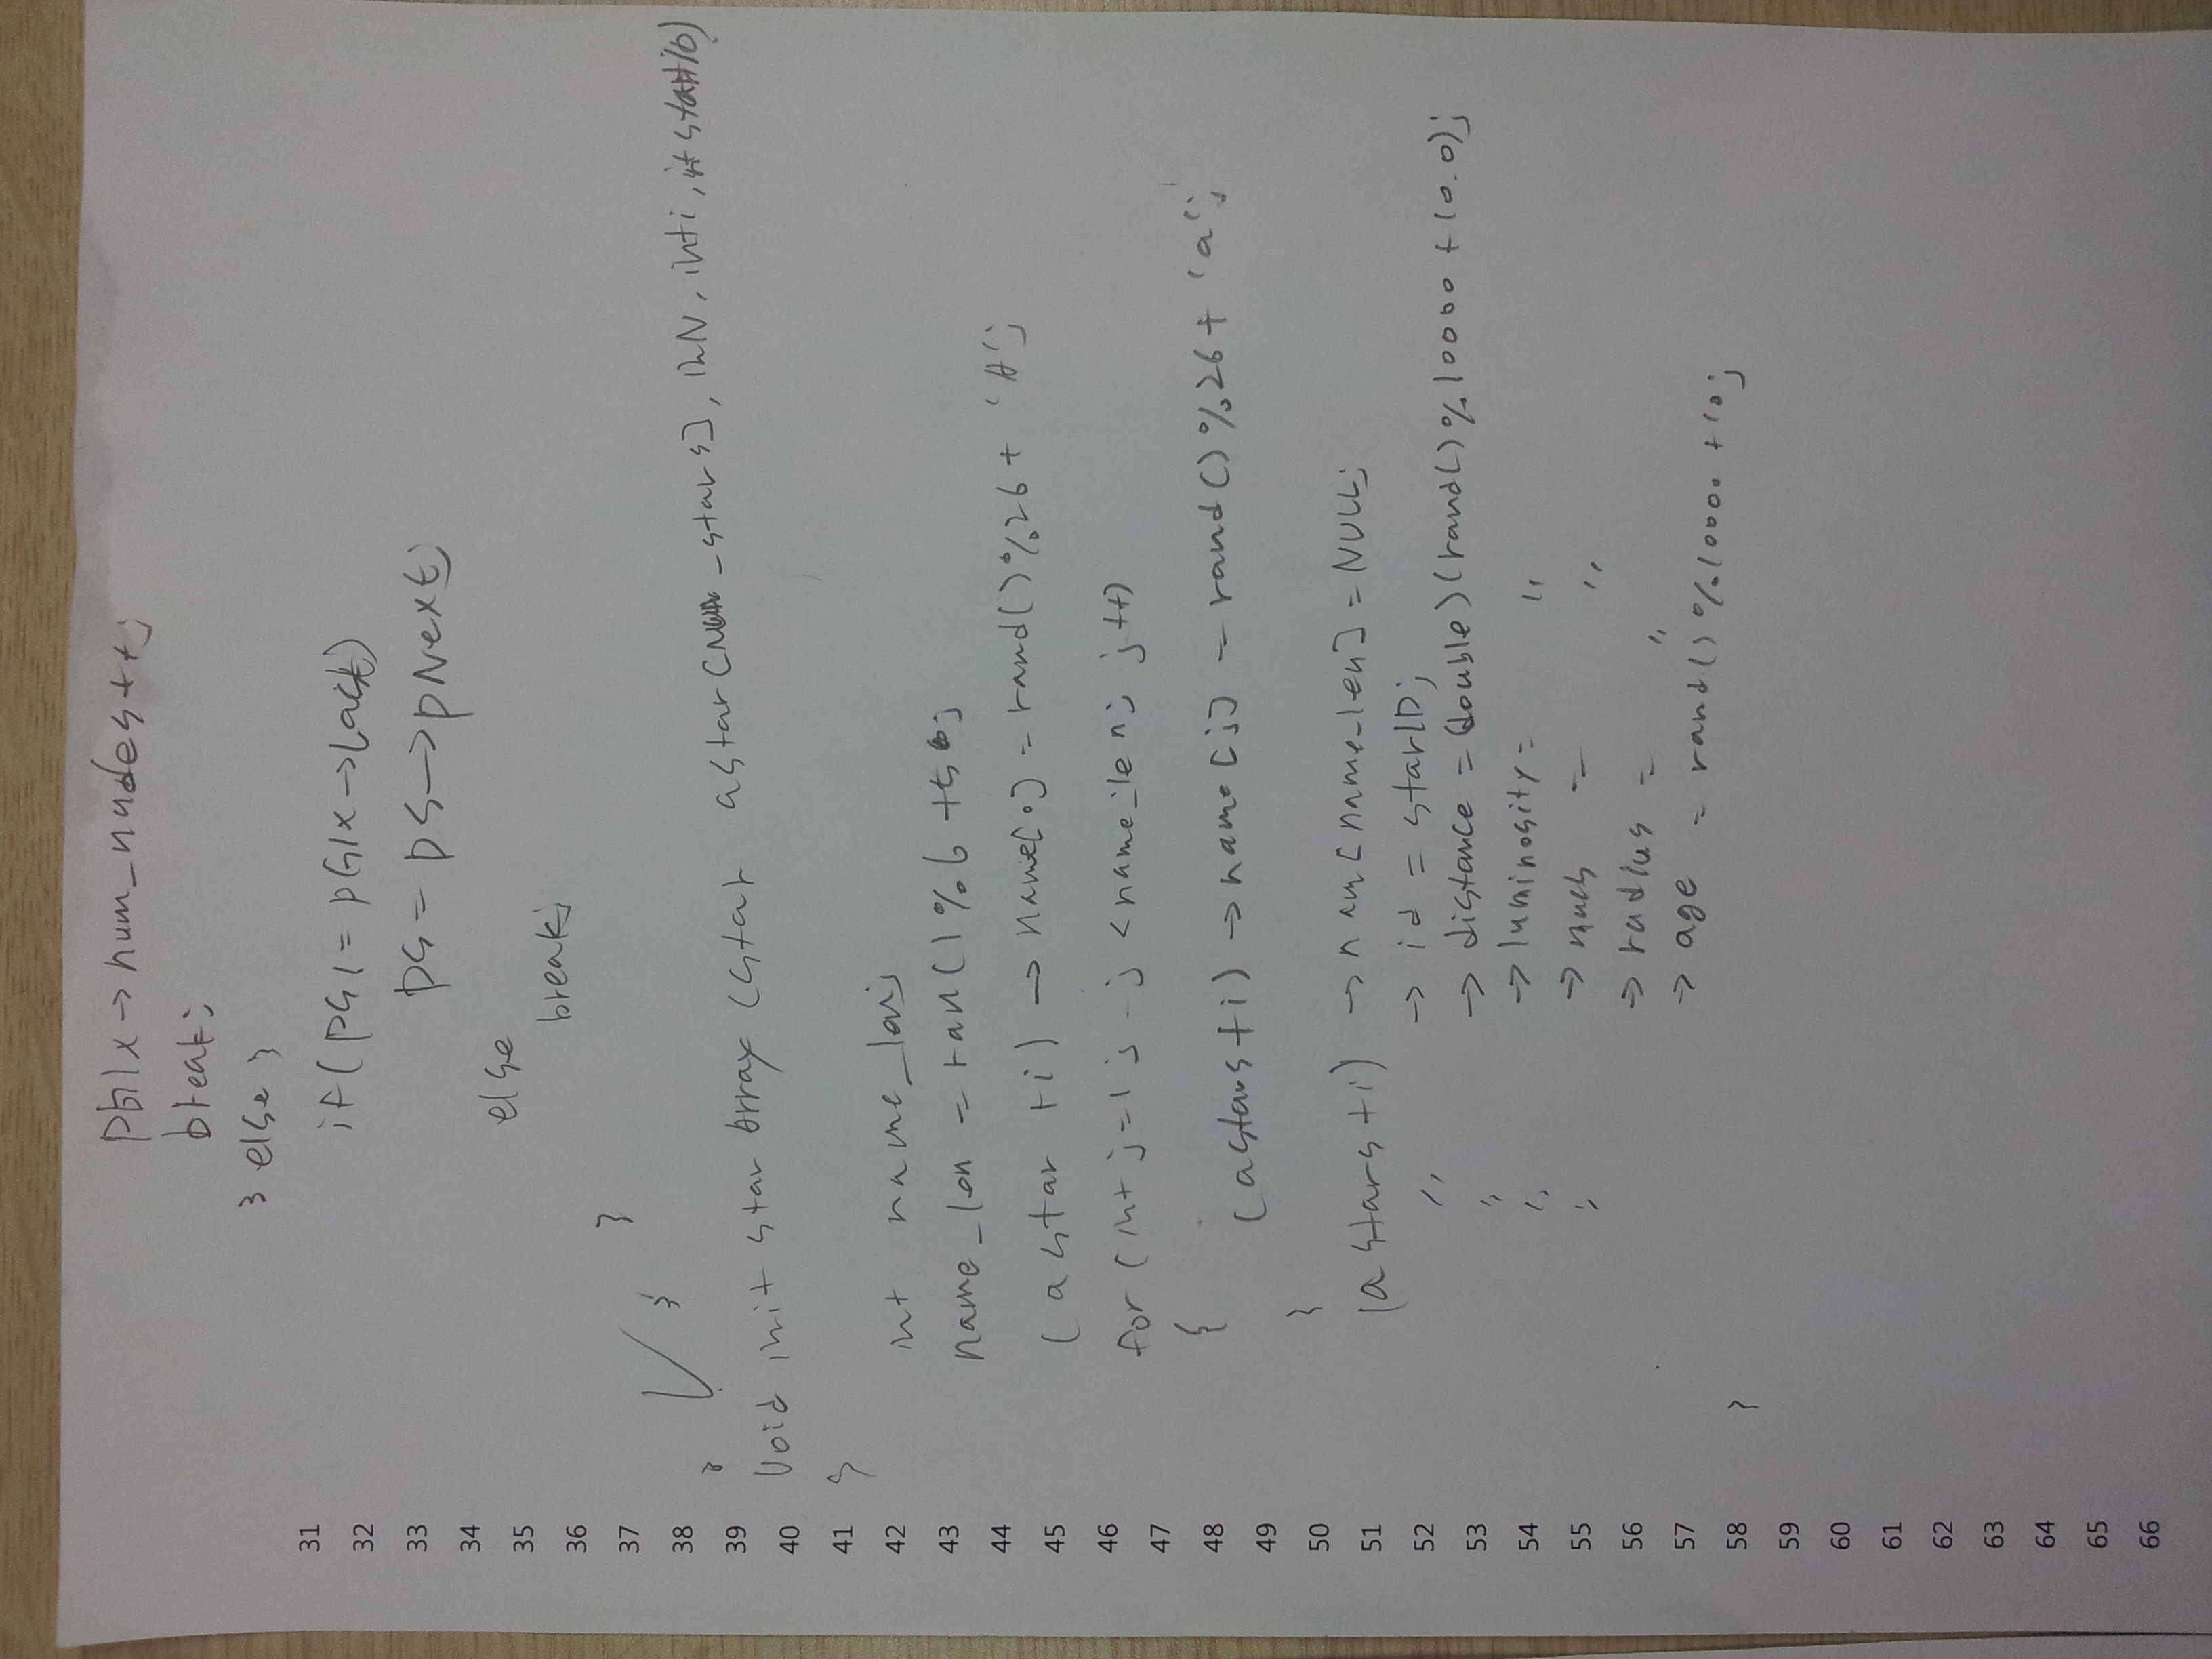 pGlx→num_nodes++;
break;
} else }
31 if (PS1 = pGlx→last)
32
33 PS = PS→pNext;
34
else
35
break;
36
37 }
38 }
39 void init star array (star astar[Num_stars], int N, int i, int starID)
40
41 {
42 int name_len;
43 name_len = ran()%6 +5;
44 (astar +i)→name[0] = rand()%26+ 'A';
45
46 for (int j=1; j <name_len; j++)
47 {
48 (astars+i)→name[j] = rand()%26+ 'a';
49 }
50
51 (astars+i) →nam[name_len] =NULL;
52 " → id = starID;
53 " → distance =(double)(rand()%10000 +10.0);
54 " → luminosity= "
55 " → mas = "
56 → radius = "
57 → age = rand()%10000+10;
58 }
59
60
61
62
63
64
65
66